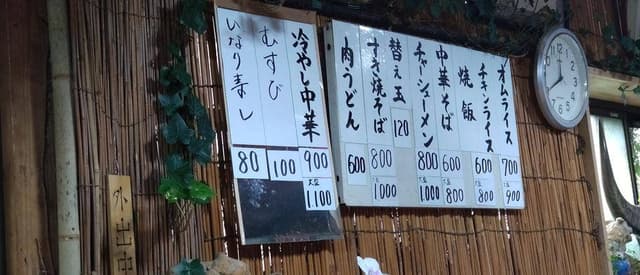 オムライス
700
900
チキンライス
焼飯
600
800
中華そば
600
800
チャーシューメン
800
1000
替え玉
120
すき焼そば
800
1000
肉うどん
600
冷やし中華
900
1100
むすび
100
いなり寿し
80
外出中